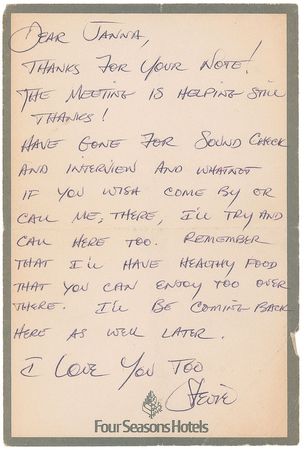 DEAR JANNA,
THANKS FOR YOUR NOTE!
THE MEETING IS HELPING STILL
THANKS!
HAVE GONE FOR SOUND CHECK
AND INTERVIEW AND WHATNOT
IF YOU WISH COME BY OR
CALL ME, THERE, I'LL TRY AND
CALL HERE TOO. REMEMBER
THAT I'LL HAVE HEALTHY FOOD
THAT YOU CAN ENJOY TOO OVER
THERE. I'LL BE COMING BACK
HERE AS WELL LATER.
I LOVE YOU TOO
STEVIE
Four Seasons Hotels